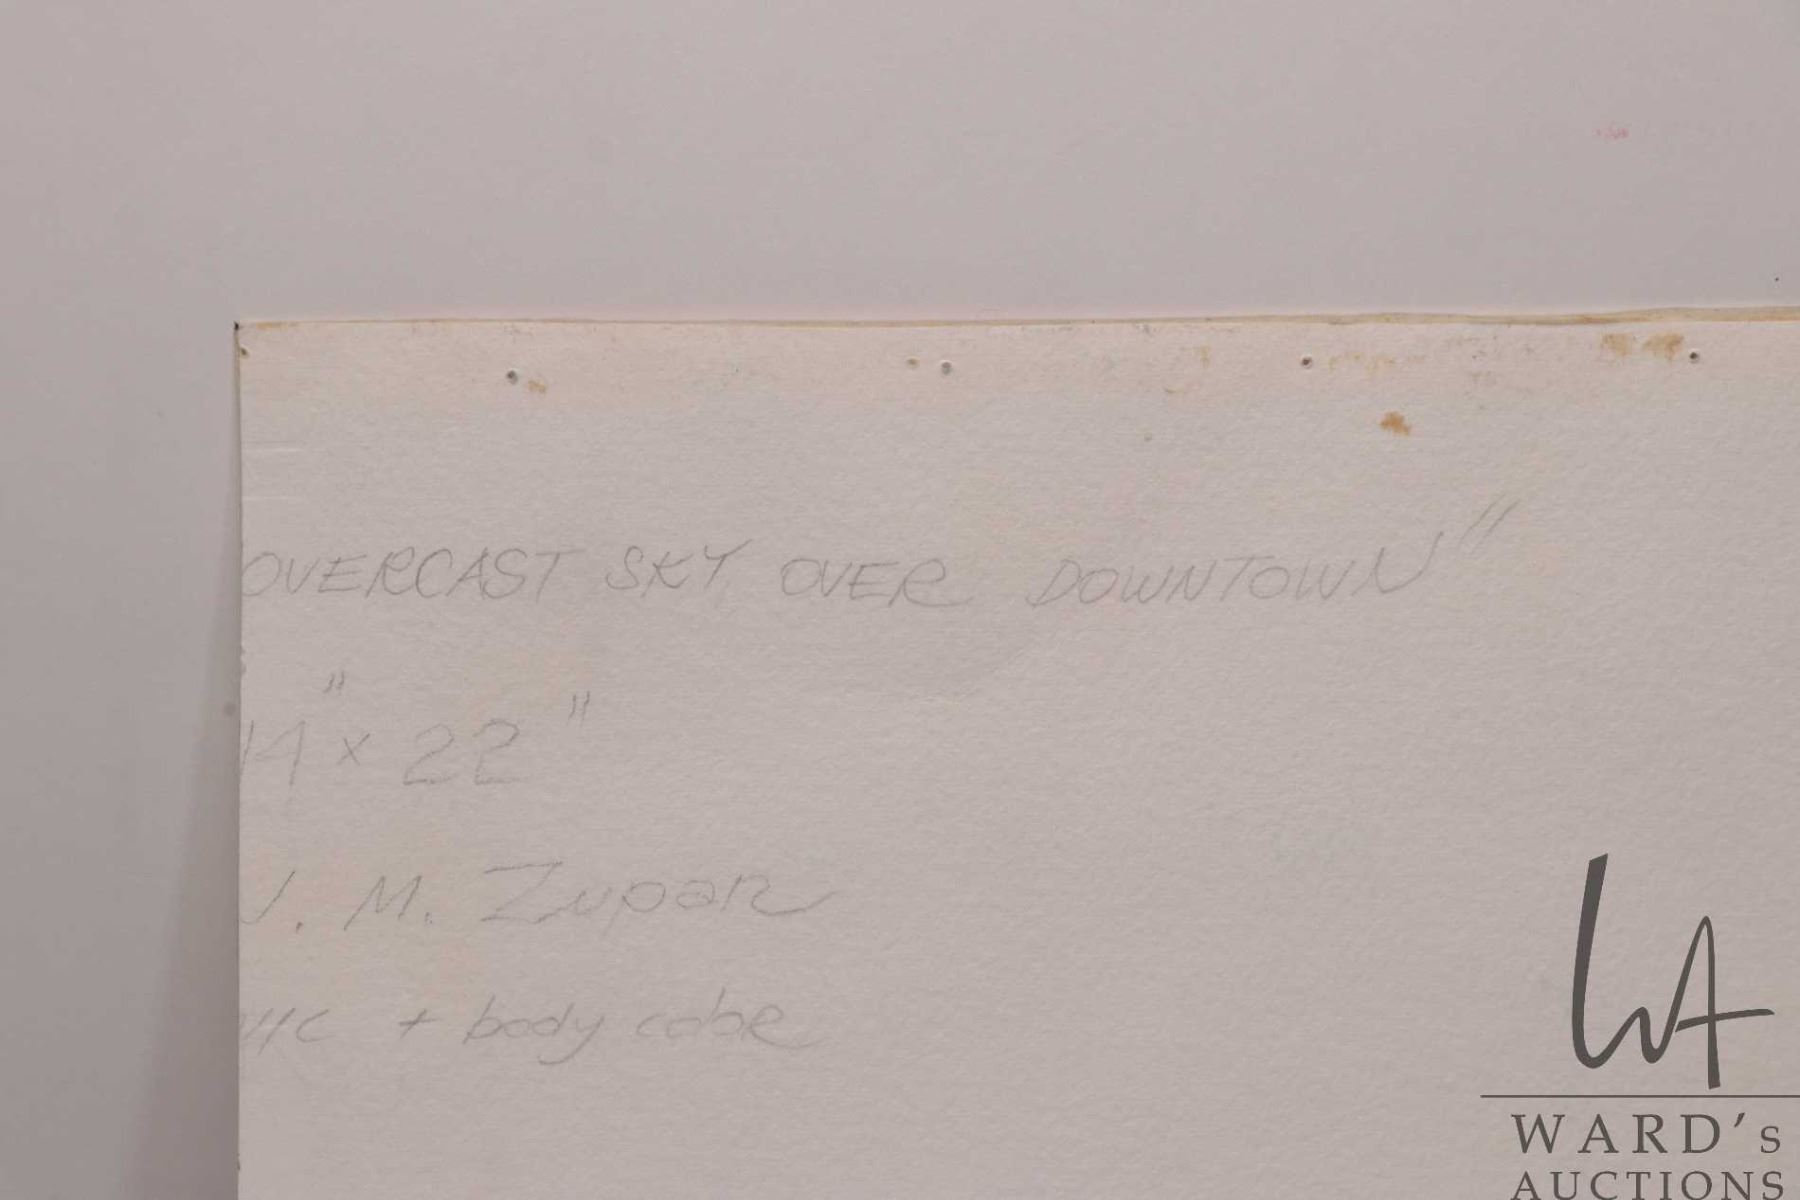 OVERCAST SKY OVER DOWNTOWN"
14" x 22"
J. M. Zupan
+ body
WA
WARD's
AUCTIONS